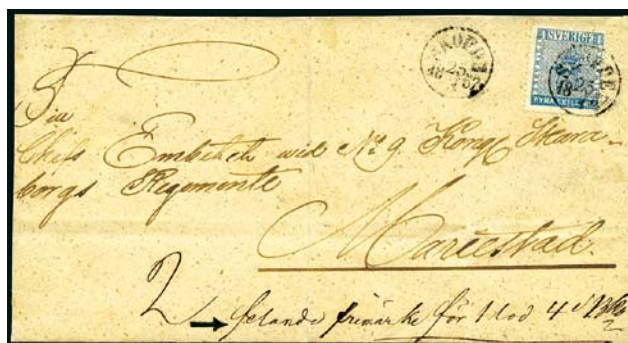 SKÖFDE
25
SVERIGE
FYRA SKILL. Bco
25
Till
Chefs Embetet wid No 9. Kongl Skara-
borgs Regemente
Mariestad.
2
felande frimärke för 1 lod 4